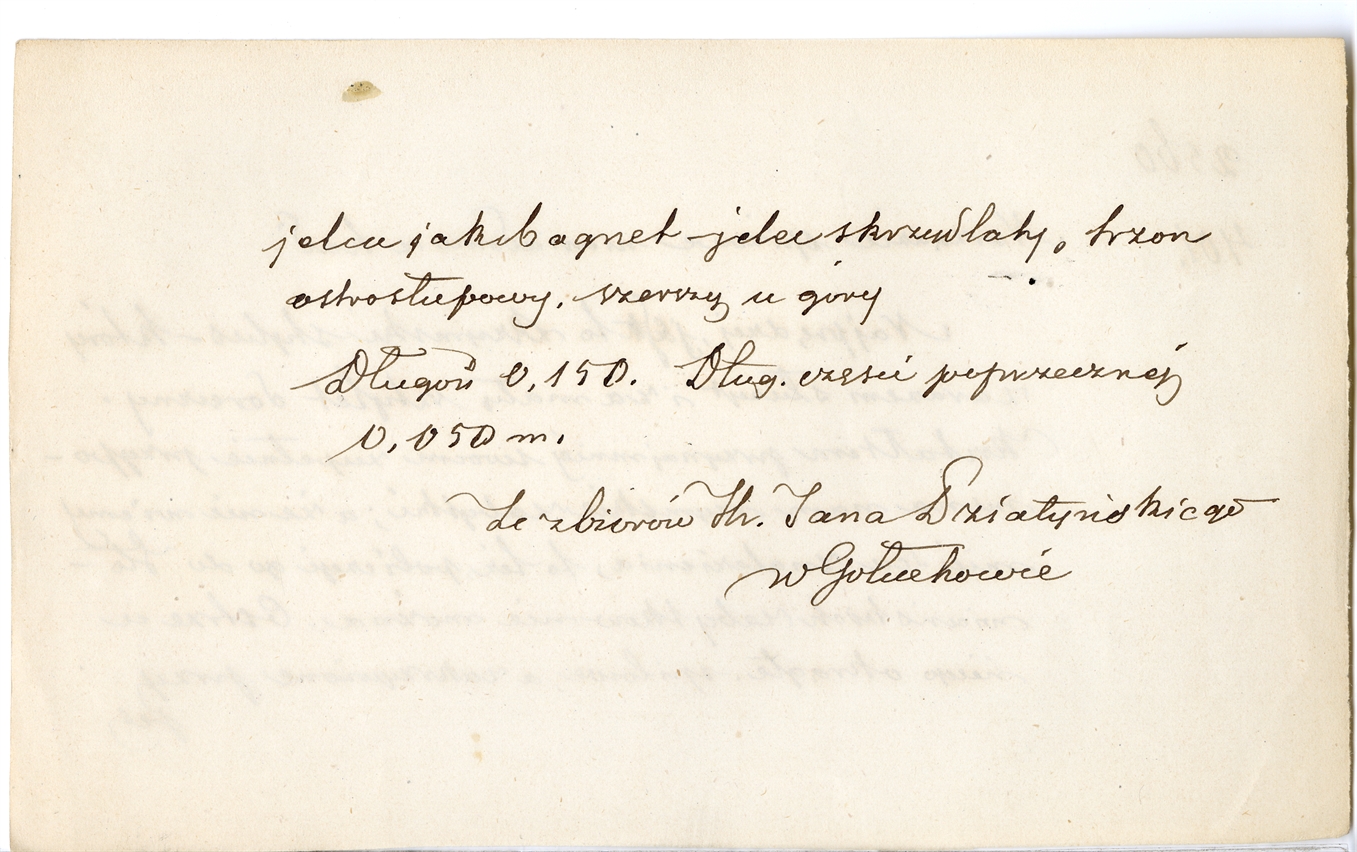 jelcu jak bagnet – jelec skrzydlaty, trzon
ostrosłupowy, szerszy u góry
Długość 0,150. Dług. części poprzecznéj
0,050 m.
Ze zbiorów Hr. Jana Działyńskiego
w Gołuchowie